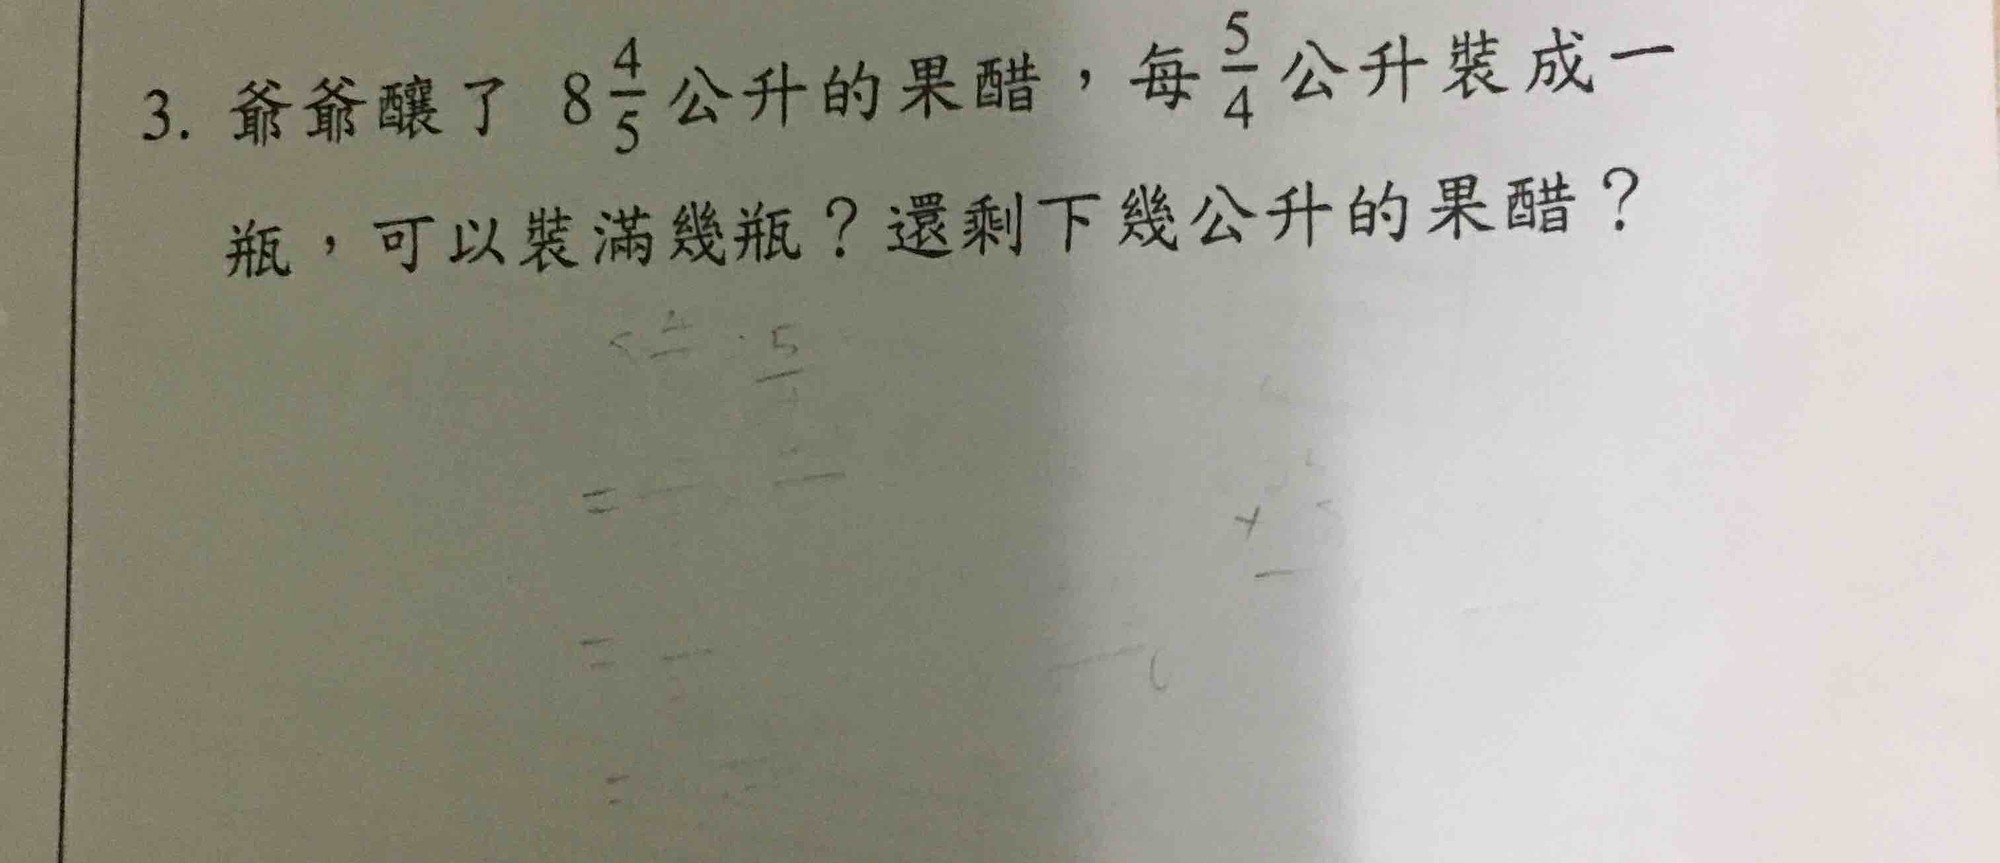 3. 爺爺釀了 8 4/5 公升的果醋，每 5/4 公升裝成一
瓶，可以裝滿幾瓶？還剩下幾公升的果醋？